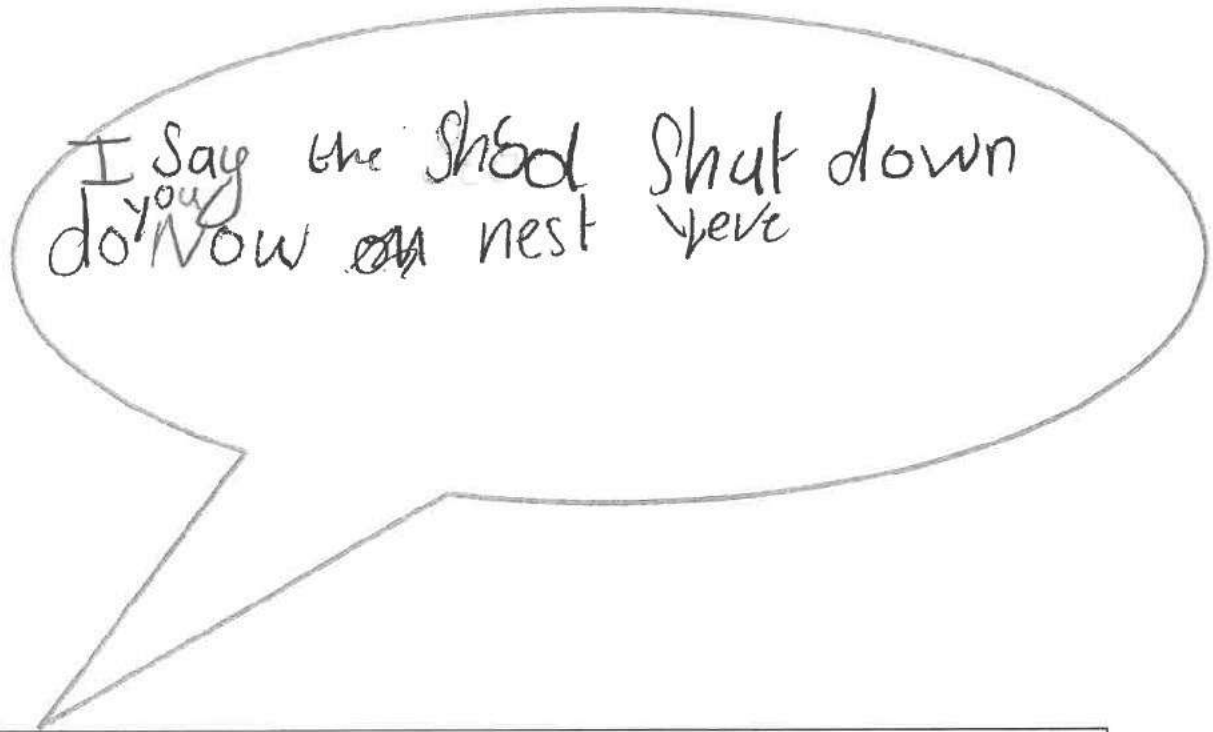 I Say the Shood Shut down
do you Now nest yere